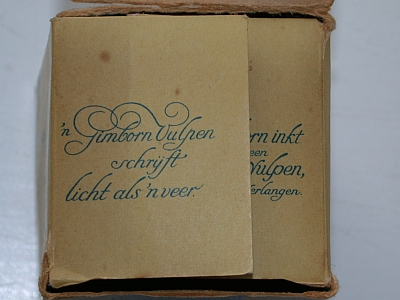 'n Gimborn Vulpen
schrijft
licht als 'n veer.
inkt
een
Vulpen,